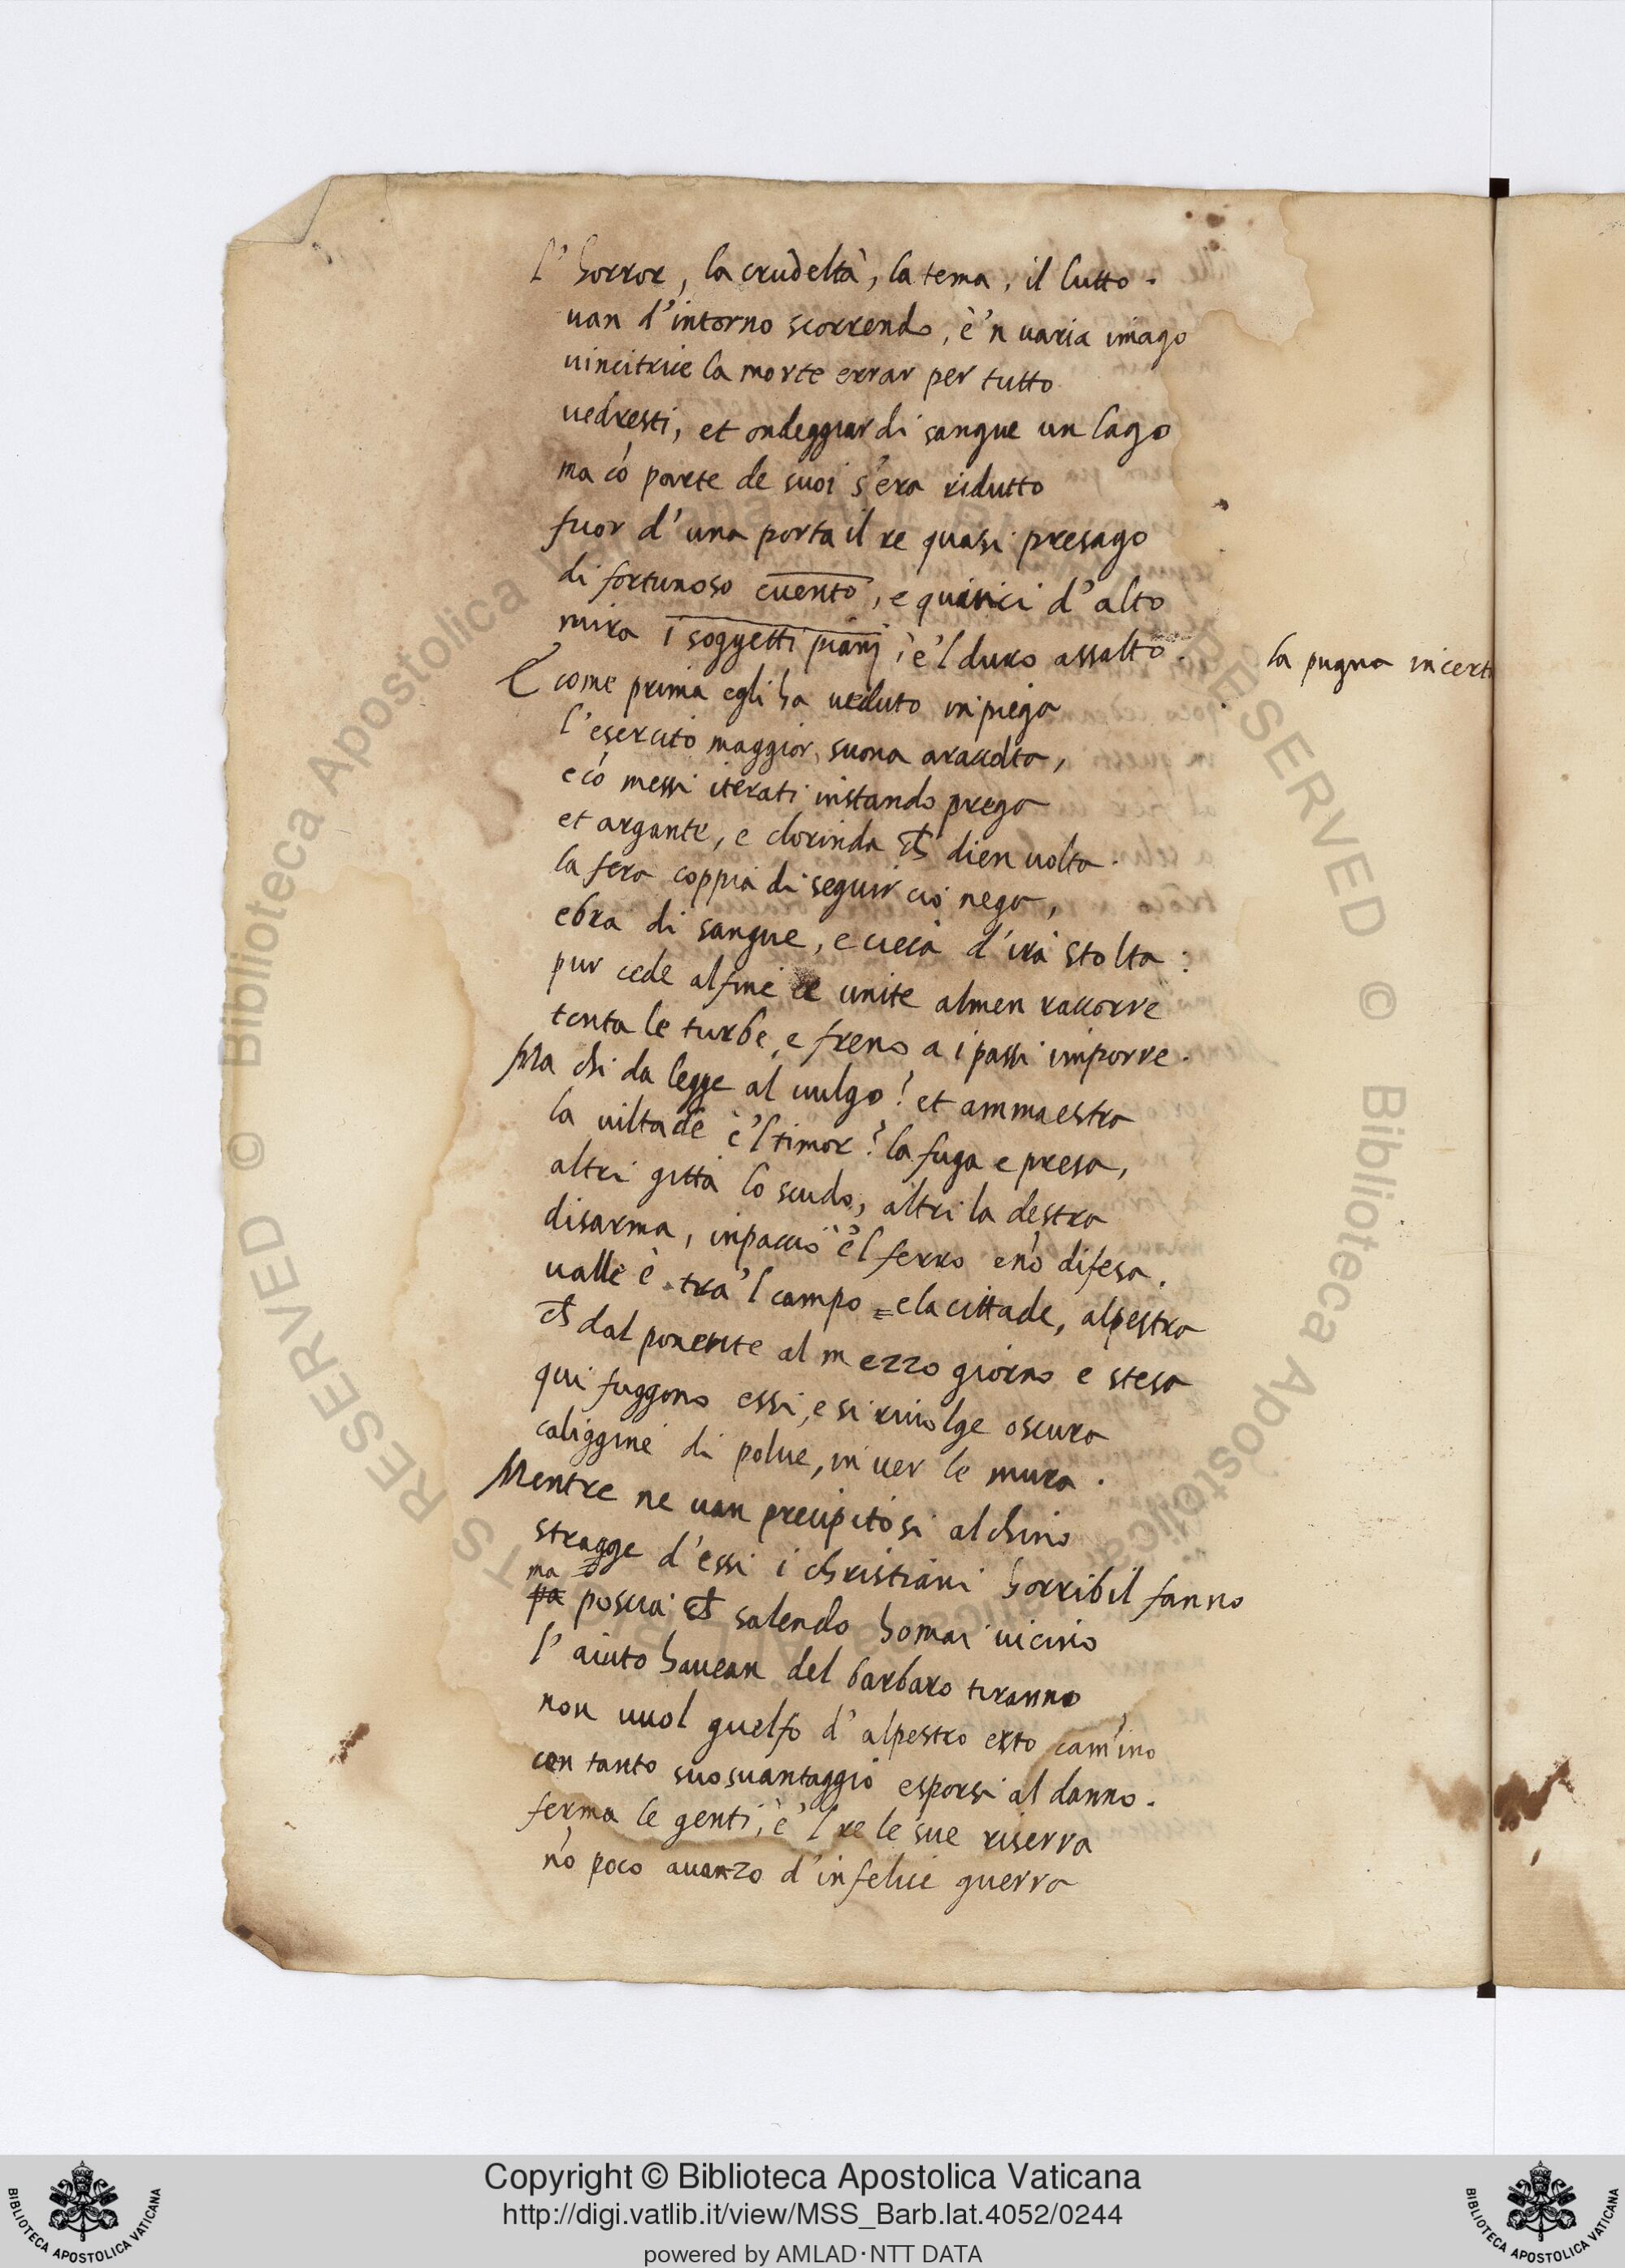 l' horror, la crudeltà, la tema, il lutto.
uan d'intorno scorrendo, è'n uaria imago
uincitrice la morte errar per tutto
uedresti, et ondeggiar di sangue un lago
ma cō parte de suoi s'era ridutto
fuor d'una porta il re quasi presago
di fortunoso euento, e quinci d'alto
mira i soggetti piani, è'l duro assalto.
la pugna incert
E come prima egli ha ueduto in piega
l'esercito maggior, suona a raccolta,
e cō messi iterati instando prega
et argante, e clorinda a dien uolta.
la fera coppia di seguir ciò nega,
ebra di sangue, e cieca d'ira stolta:
pur cede al fine e unite almen raccorre
tenta le turbe, e freno a i passi imporre.
Ma chi da legge al uulgo? et ammaestra
la uiltade è'l timor? la fuga e presa,
altri gitta lo scudo, altri la destra
disarma, inpaccio è'l ferro e nō difesa.
ualle è tra'l campo e la cittade, alpestra
dal ponente al mezzo giorno e stesa
qui fuggono essi, e si riuolge oscura
caliggine di polue, in uer le mura.
Mentre ne uan precipitosi al chino
stragge d'essi i christiani horribil fanno
ma
pa poscia salendo homai uicino
l' aiuto hauean del barbaro tiranno
non uuol guelfo d' alpestro erto camino
con tanto suo suantaggio esporsi al danno.
ferma le genti, è'l re le sue riserra
nō poco auanzo d'infelice guerra
Copyright © Biblioteca Apostolica Vaticana
http://digi.vatlib.it/view/MSS_Barb.lat.4052/0244
powered by AMLAD·NTT DATA
BIBLIOTECA APOSTOLICA VATICANA
BIBLIOTECA APOSTOLICA VATICANA